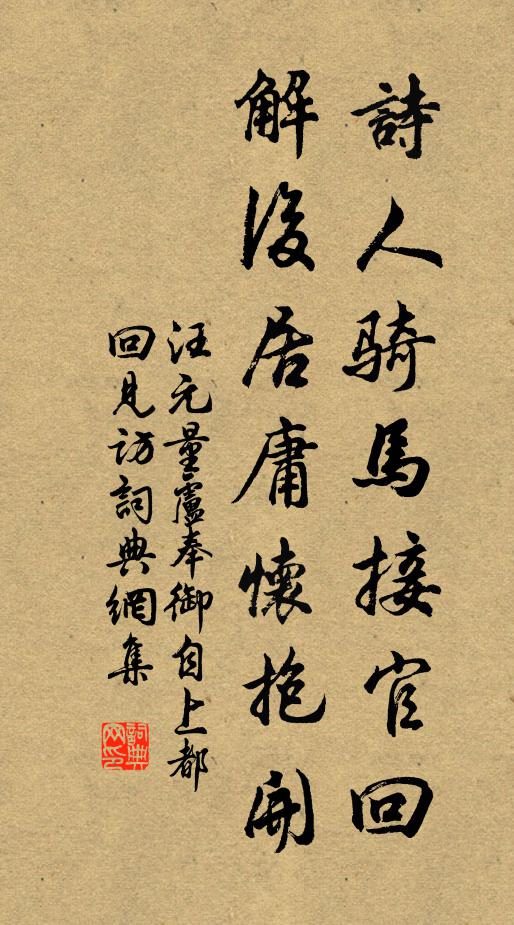 詩人騎馬接官回
解後居庸懷抱開
汪元量盧奉御自上都
回見訪詞典網集
詞典網印